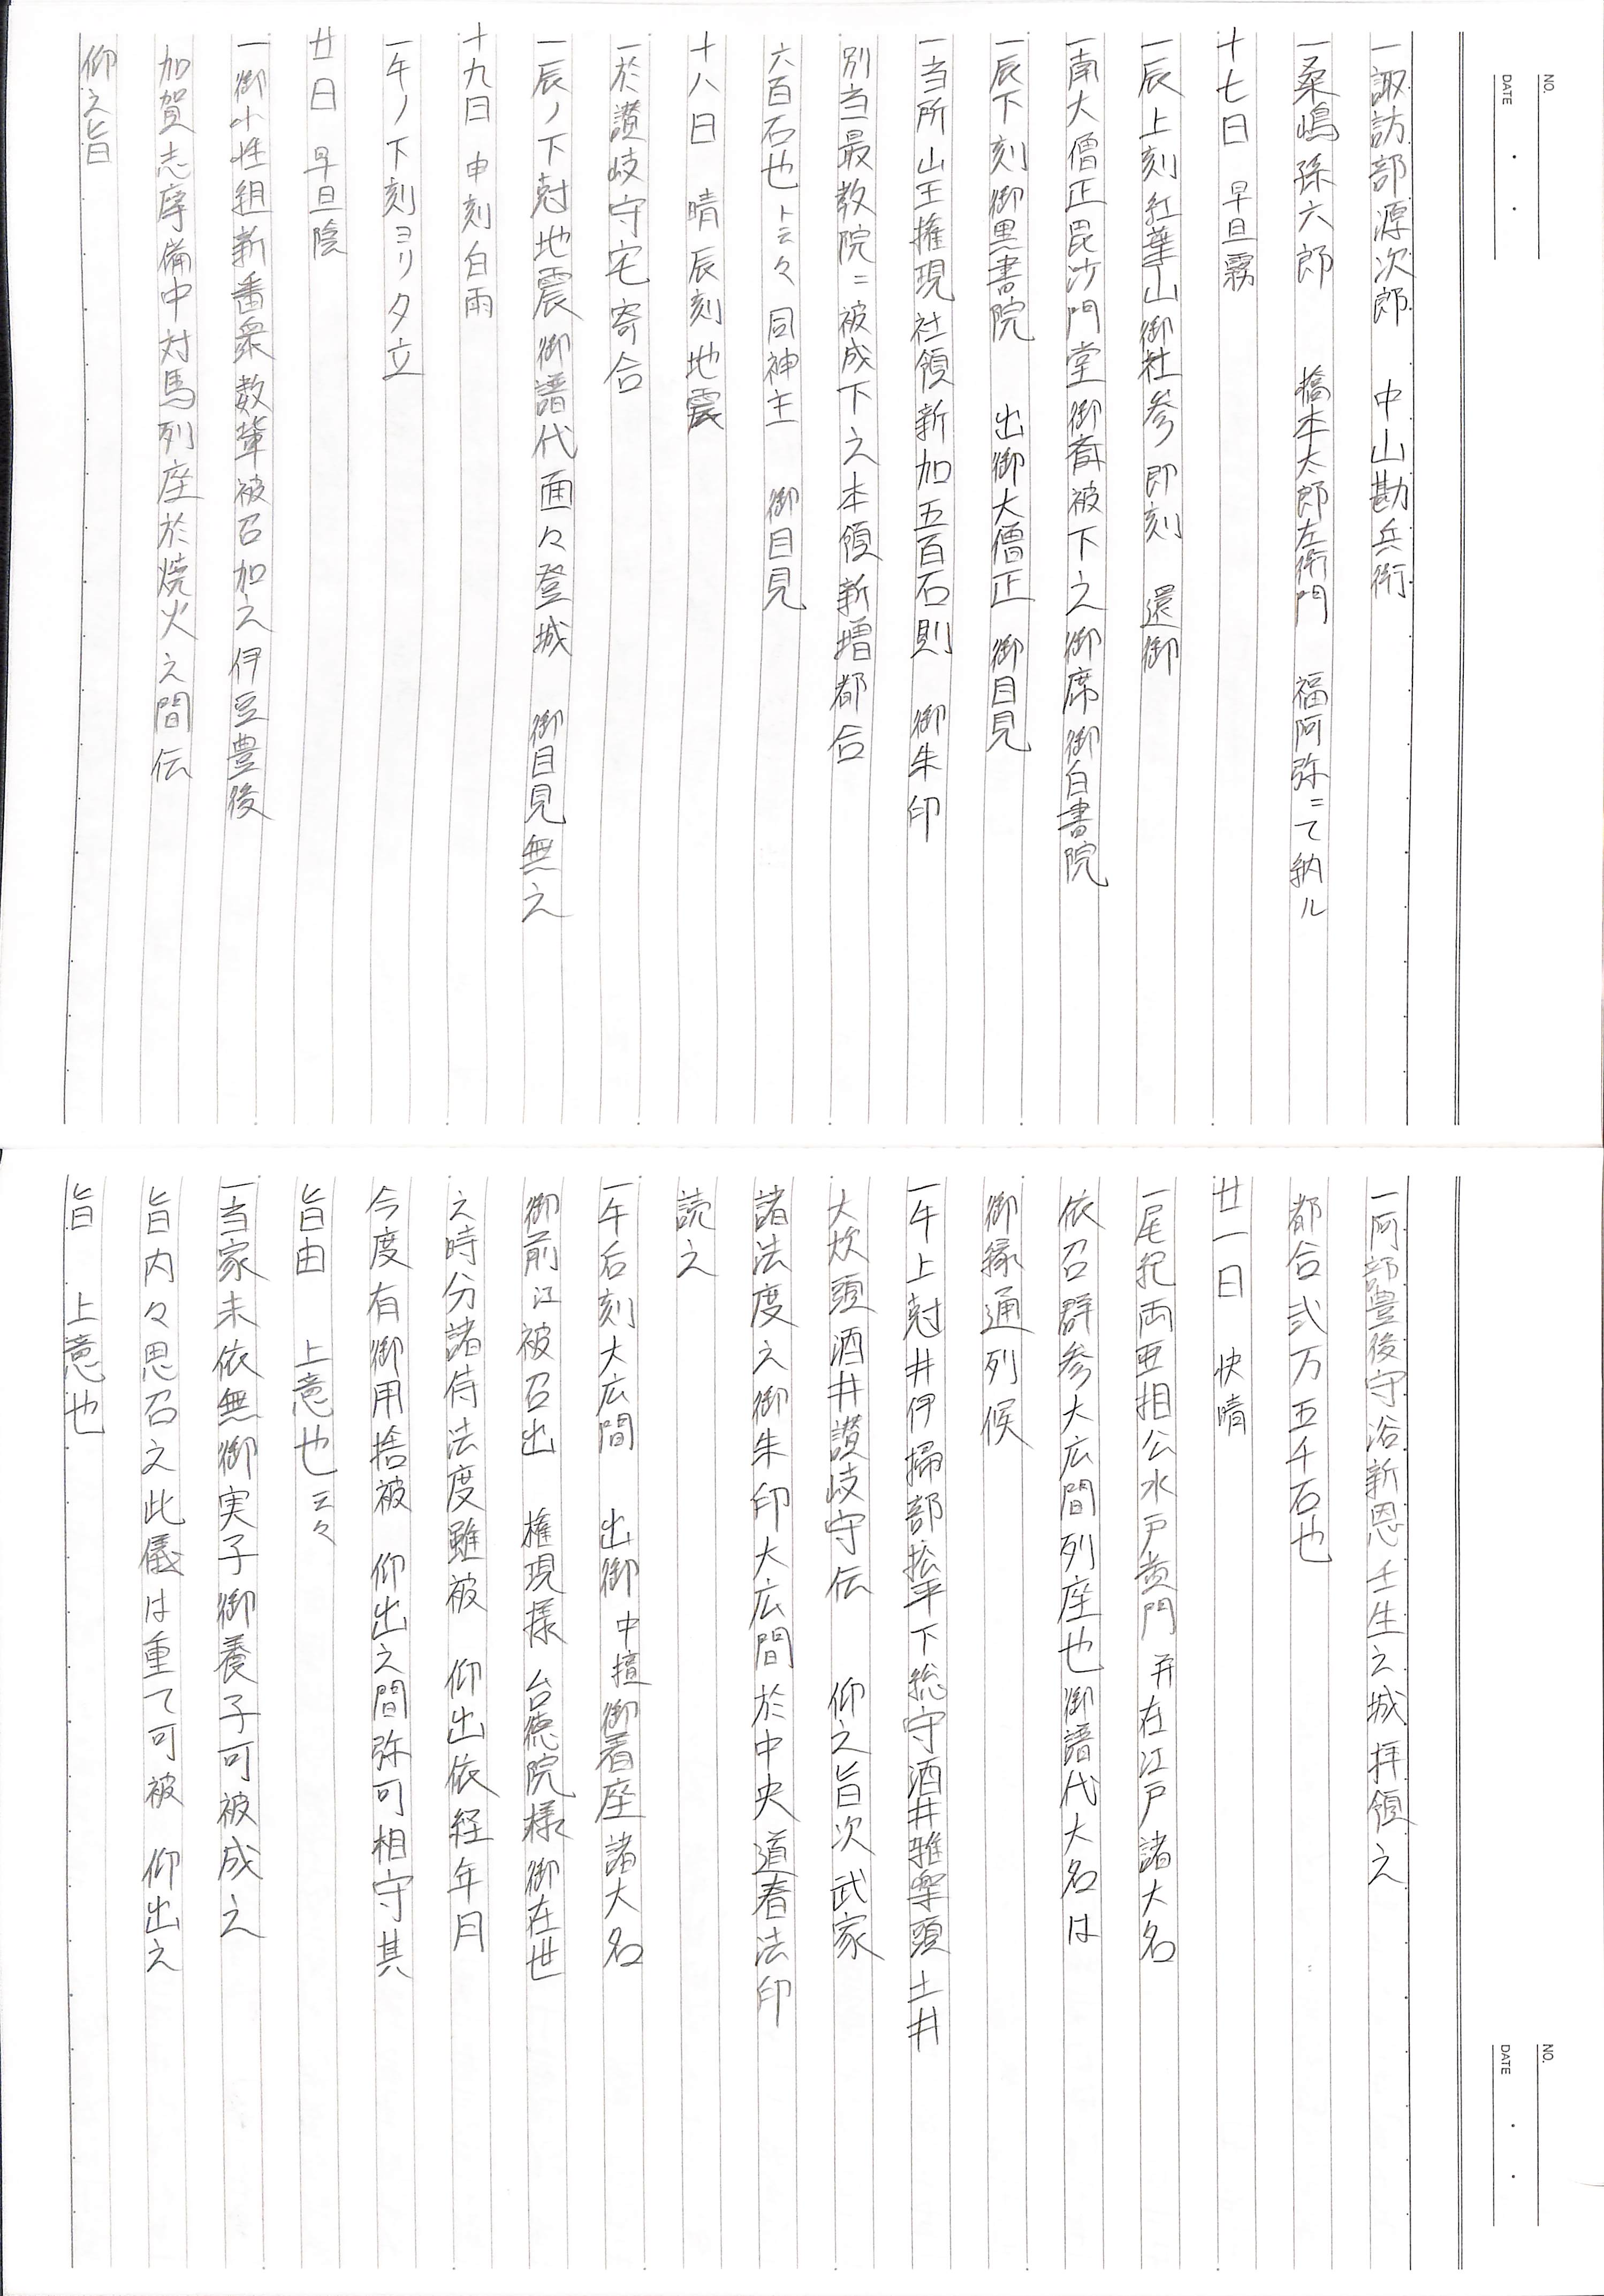 NO.
DATE
一諏訪部源次郎 中山勘兵衛
一桑嶋孫六郎 橋本太郎左衛門 福阿弥ニて納ル
十七日 早旦霧
一辰上刻紅葉山御社参即刻 還御
一南大僧正毘沙門堂御斎被下之御席御白書院
一辰下刻御黒書院 出御大僧正 御目見
一当所山王権現社領新加五百石則 御朱印
別当最教院ニ被成下之本領新増都合
六百石也ト云々 同神主 御目見
十八日 晴辰刻地震
一於讃岐守宅寄合
一辰ノ下尅地震御譜代面々登城 御目見無之
十九日 申刻白雨
一午ノ下刻ヨリ夕立
廿日 早旦陰
一御小性組新番衆数輩被召加之伊豆豊後
加賀志摩備中対馬列座於焼火之間伝
仰之旨
NO.
DATE
一阿部豊後守浴新恩壬生之城拝領之
都合弐万五千石也
廿一日 快晴
一尾紀両亜相公水戸黄門并在江戸諸大名
依召群参大広間列座也御譜代大名は
御縁通列候
一午上尅井伊掃部松平下総守酒井雅楽頭土井
大炊頭酒井讃岐守伝 仰之旨次武家
諸法度之御朱印大広間於中央道春法印
読之
一午后刻大広間 出御中壇御着座諸大名
御前江被召出 権現様 台徳院様御在世
之時分諸侍法度雖被 仰出依経年月
今度有御用捨被 仰出之間弥可相守其
旨由 上意也云々
一当家未依無御実子御養子可被成之
旨内々思召之此儀は重て可被 仰出之
旨 上意也